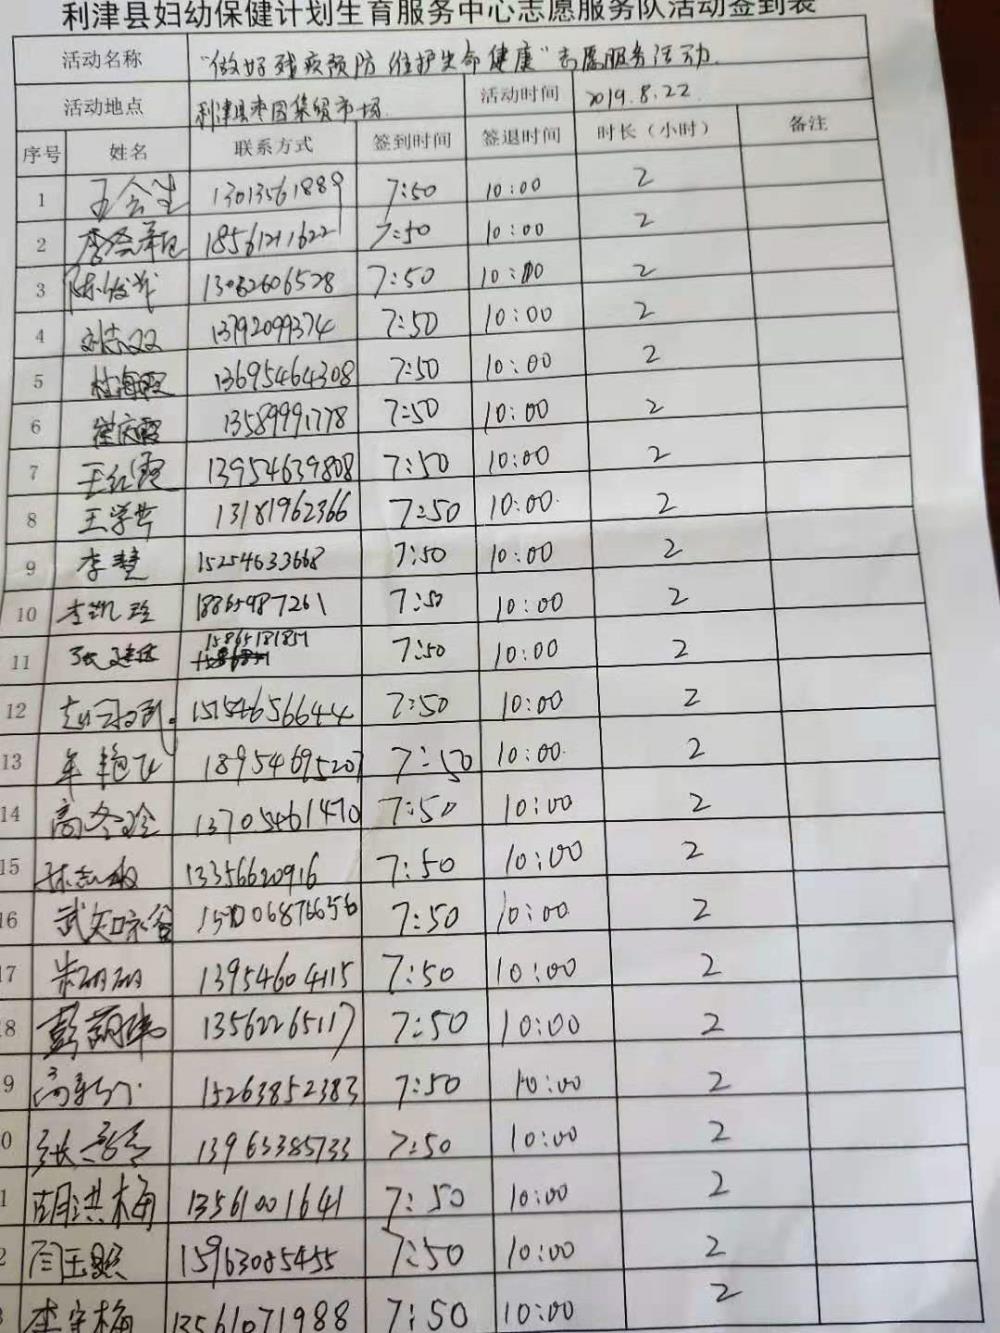 利津县妇幼保健计划生育服务中心志愿服务队活动签到表
活动名称 “做好残疾预防 维护生命健康”志愿服务活动.
活动地点 利津县枣园集贸市场. 活动时间 2019.8.22
序号 姓名 联系方式 签到时间 签退时间 时长（小时） 备注
1 王会生 13013561889 7:50 10:00 2
2 18561211622 7:50 10:00 2
3 13082606528 7:50 10:00 2
4 刘志双 13792099374 7:50 10:00 2
5 杜海霞 13695464308 7:50 10:00 2
6 崔庆霞 13589991778 7:50 10:00 2
7 王红霞 13954639808 7:50 10:00 2
8 王学芹 13181962366 7:50 10:00 2
9 李慧 15254633668 7:50 10:00 2
10 李凯玲 18865987261 7:50 10:00 2
11 15865181857 7:50 10:00 2
12 15154656644 7:50 10:00 2
13 年艳飞 18954695207 7:50 10:00 2
14 高冬玲 13705461470 7:50 10:00 2
15 陈志敏 13356620916 7:50 10:00 2
16 武知咏谷 7:50 10:00 2
17 朱丽丽 13954604115 7:50 10:00 2
8 彭萌 13562265117 7:50 10:00 2
9 15263852383 7:50 10:00 2
0 13963385733 7:50 10:00 2
1 胡洪梅 13561001641 7:50 10:00 2
2 闫玉照 15963085455 7:50 10:00 2
3 李守梅 13561071988 7:50 10:00 2